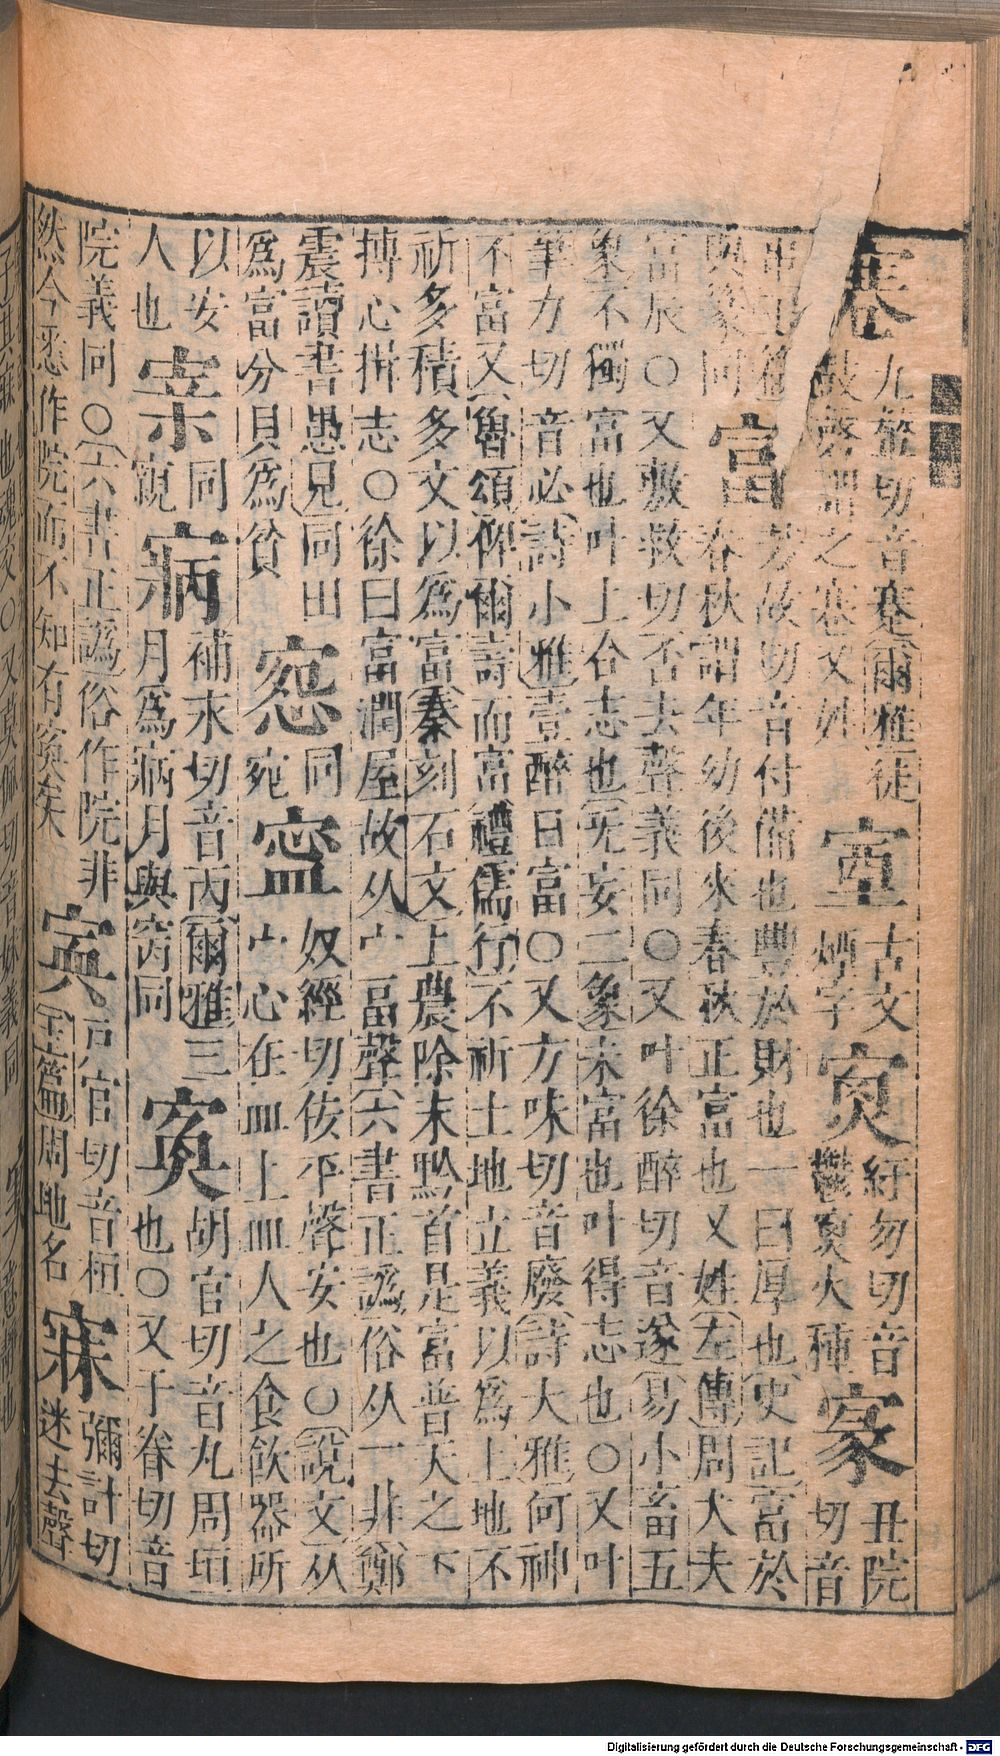 九輦切音蹇爾雅徒 窒 古文 㝧 紆勿切音 家 丑院
鼓齊謂之寋又姓 煙字 鬱㝧火種 切音
與彖同 富 芳故切音付備也豐於財也一曰厚也史記富於
春秋謂年幼後來春秋正富也又姓左傳周大夫
富辰○又敷救切否去聲義同○又叶徐醉切音遂易小畜五
象不獨富也叶上合志也旡妄二象未富也叶得志也○又叶
筆力切音必詩小雅壹醉日富○又方味切音廢詩大雅何神
不富又魯頌俾爾壽而富禮儒行不祈土地立義以爲土地不
祈多積多文以爲富秦刻石文上農除末黔首是富普天之下
摶心揖志○徐曰富潤屋故从宀畐聲六書正譌俗从一非鄭
震讀書愚見同田 㤪 同 寍 奴經切佞平聲安也○說文从
爲富分貝爲貧 宛 宀心在皿上皿人之食飲器所
以安 同 寎 補永切音丙爾雅三 寏 胡官切音丸周垣
人也 寀 寎月爲寎月與窉同 也○又于眷切音
院義同○六書正譌俗作院非 戶官切音桓 寐 彌計切
然今悉作院而不知有寏矣 玉篇周地名 迷去聲
Digitalisierung gefördert durch die Deutsche Forschungsgemeinschaft - DFG